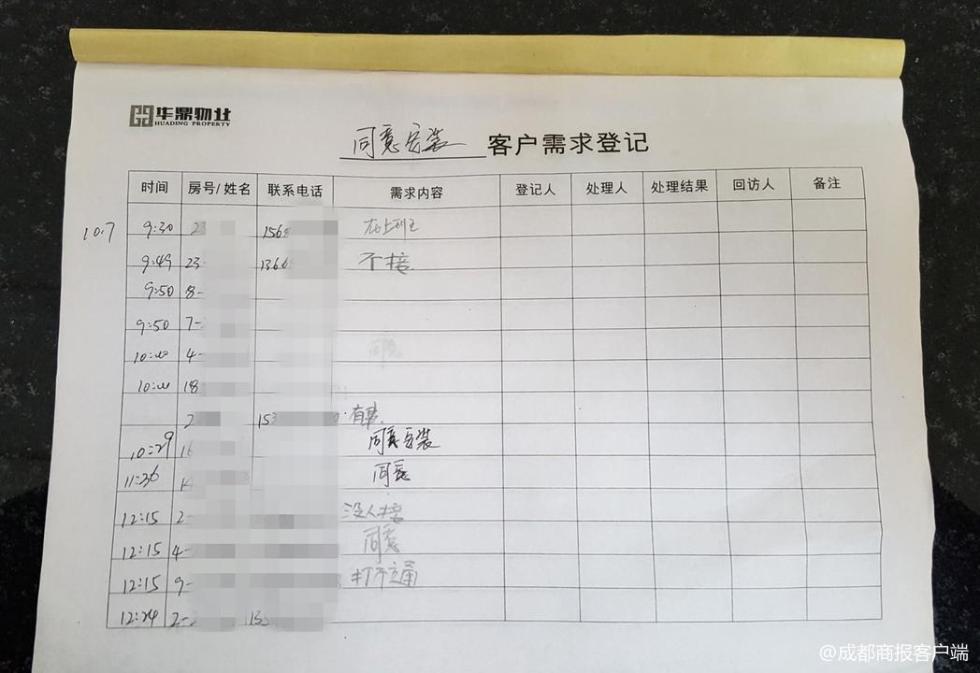 华鼎物业
HUADING PROPERTY
同意安装 客户需求登记
时间 房号/姓名 联系电话 需求内容 登记人 处理人 处理结果 回访人 备注
10.7 9:30 2 156 在上班
9:49 23 136 不接
9:50 8-
9:50 7-
10:00 4- 同意
10:00 18
2 15 有事
10:29 16 同意安装
11:36 同意
12:15 2- 没人接
12:15 4- 同意
12:15 9- 打不通
12:24 2- 13
@成都商报客户端